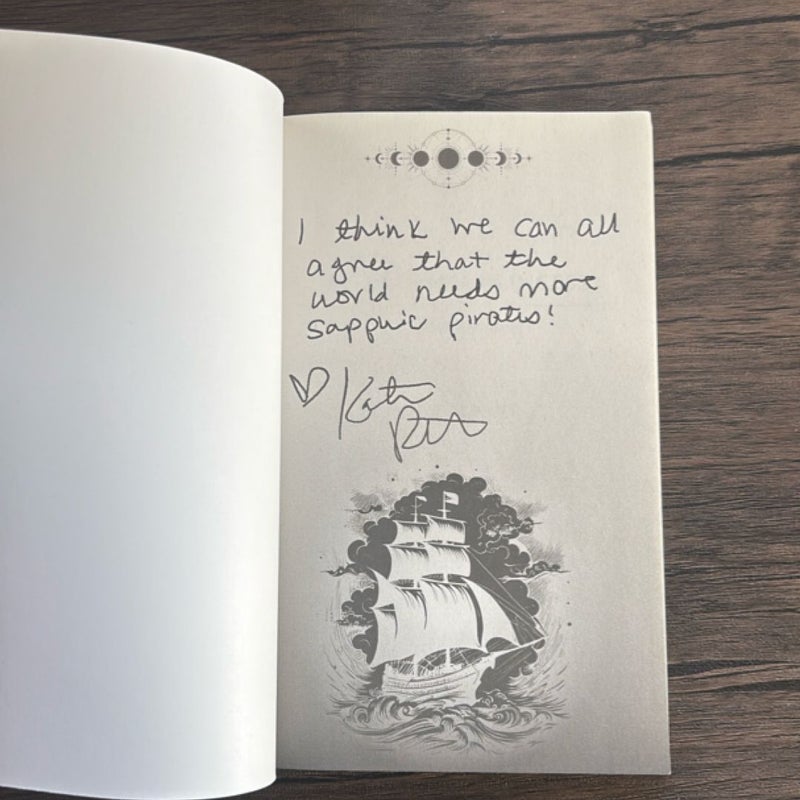 I think we can all
agree that the
world needs more
sapphic pirates!
♡ Katie